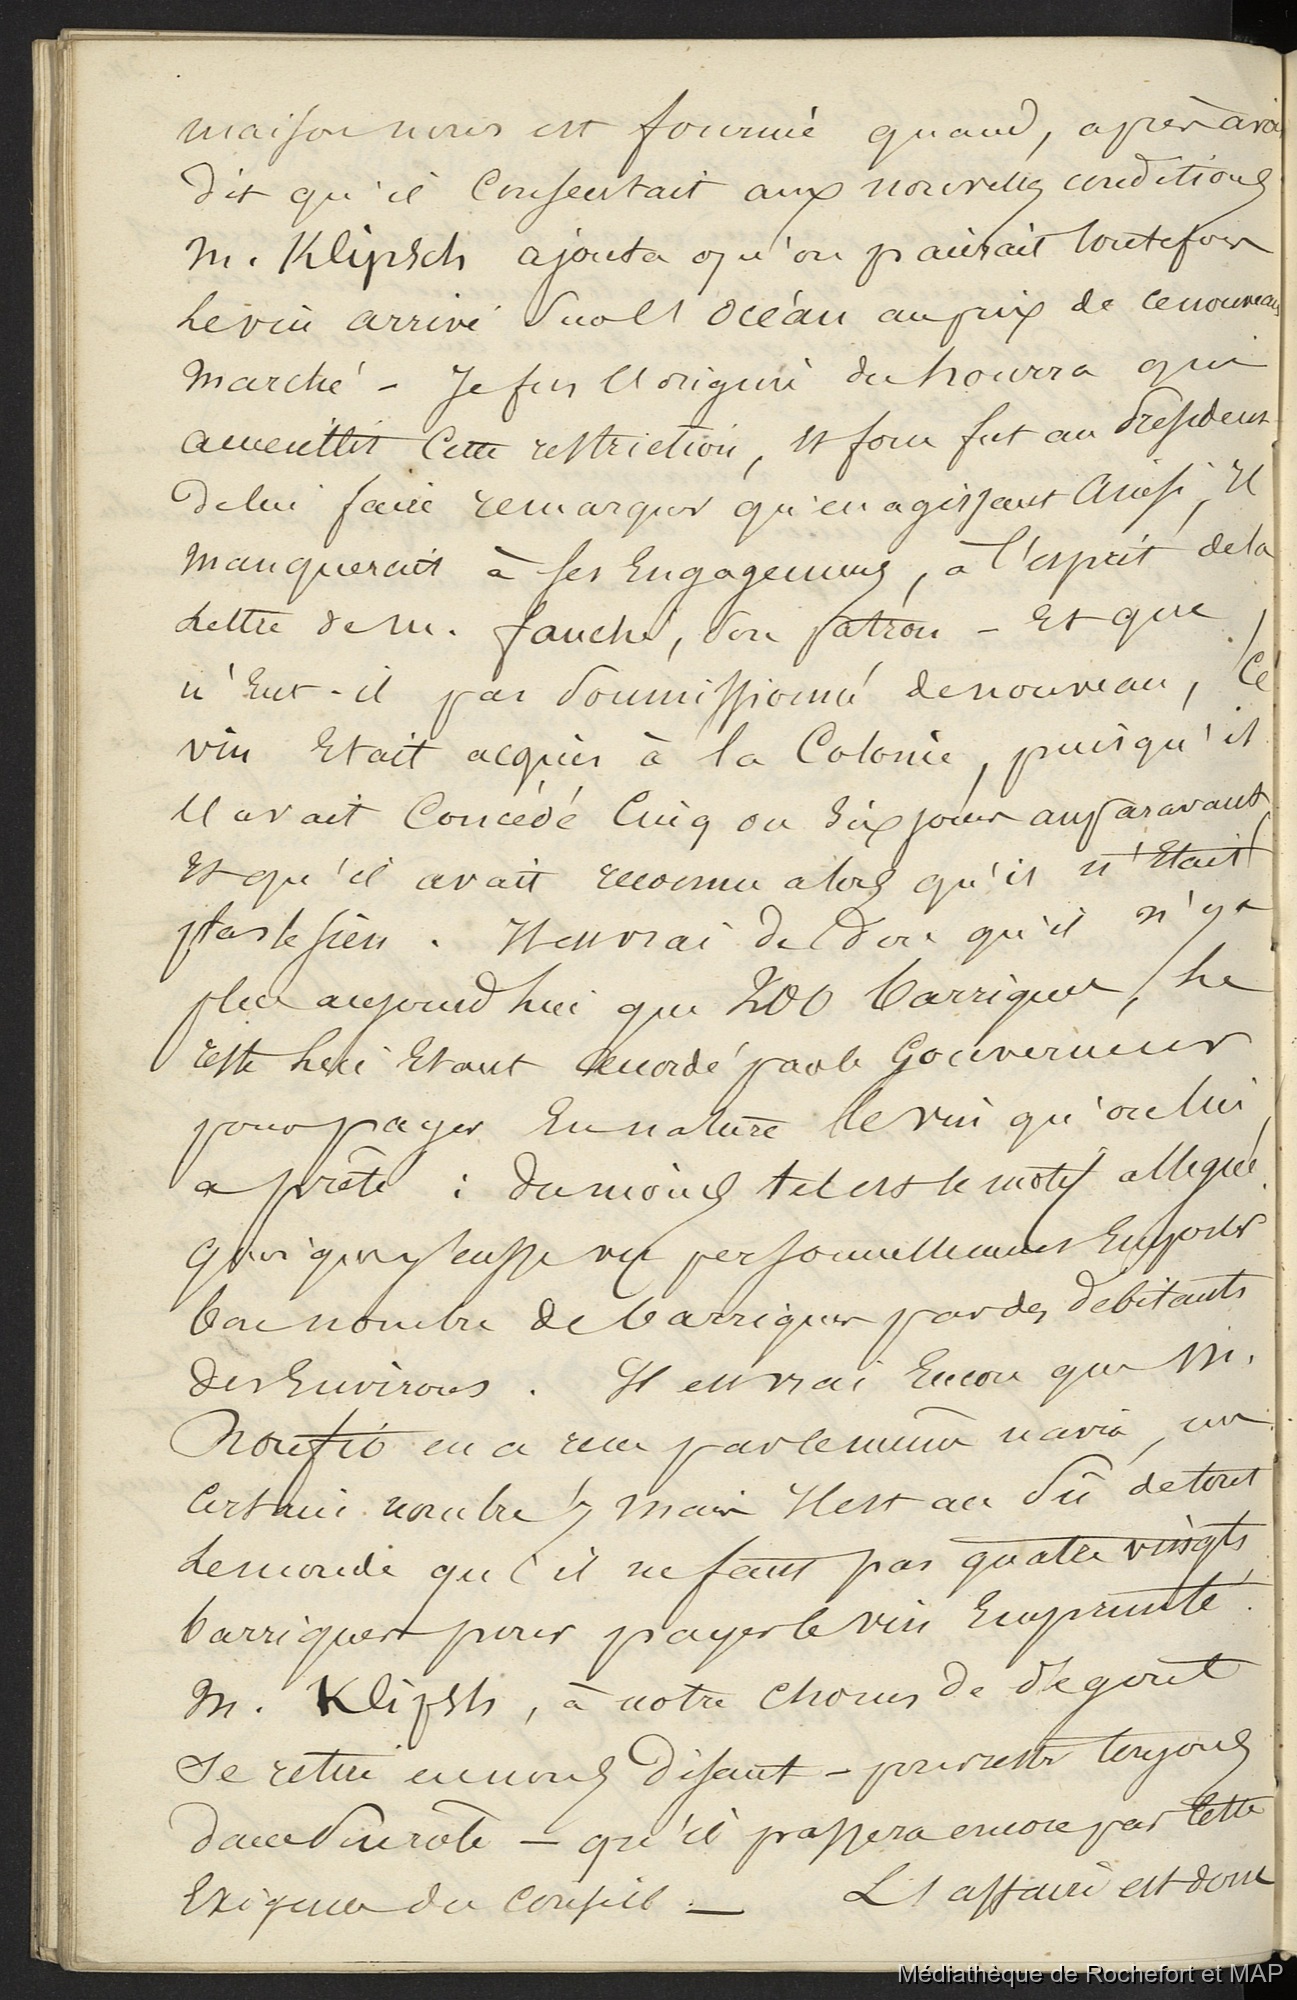 maison nous est fournie quand, après avoir
dit qu'il consentait aux nouvelles conditions
M. Klipsch ajouta qu'on païrait toutefois
le vin arrivé sur l'Océan au prix de ce nouveau
marché - Je fus l'origine du hourra qui
accueillit cette restriction, et force fut au Président
de lui faire remarquer qu'en agissant ainsi, il
manquerait à ses engagements, à l'esprit de la
lettre de M. fauché, son patron - Et que
n'eut-il pas soumissionné de nouveau, ce
vin était acquis à la Colonie, puisqu'il
l'avait concédé cinq ou six jours auparavant,
et qu'il avait reconnu alors qu'il n'était
plus le sien. Il est vrai de dire qu'il n'y a
plus aujourd'hui que 200 barriques, le
reste lui étant accordé par le Gouverneur
pour payer en nature le vin qu'on lui
a prêté : du moins tel est le motif allégué
quoique j'eusse vu personnellement emporter
bon nombre de barriques par des débitants
des environs. Il est vrai encore que M.
Noufio en a reçu par le même navire, un
certain nombre, mais il est au su de tout
le monde qu'il ne faut pas quatre vingts
barriques pour payer le vin emprunté.
M. Klipsh, à notre chorus de dégout
se retire en nous disant - pour rester toujours
dans son rôle - qu'il passera encore par cette
exigence du conseil - L'affaire est donc
Médiathèque de Rochefort et MAP